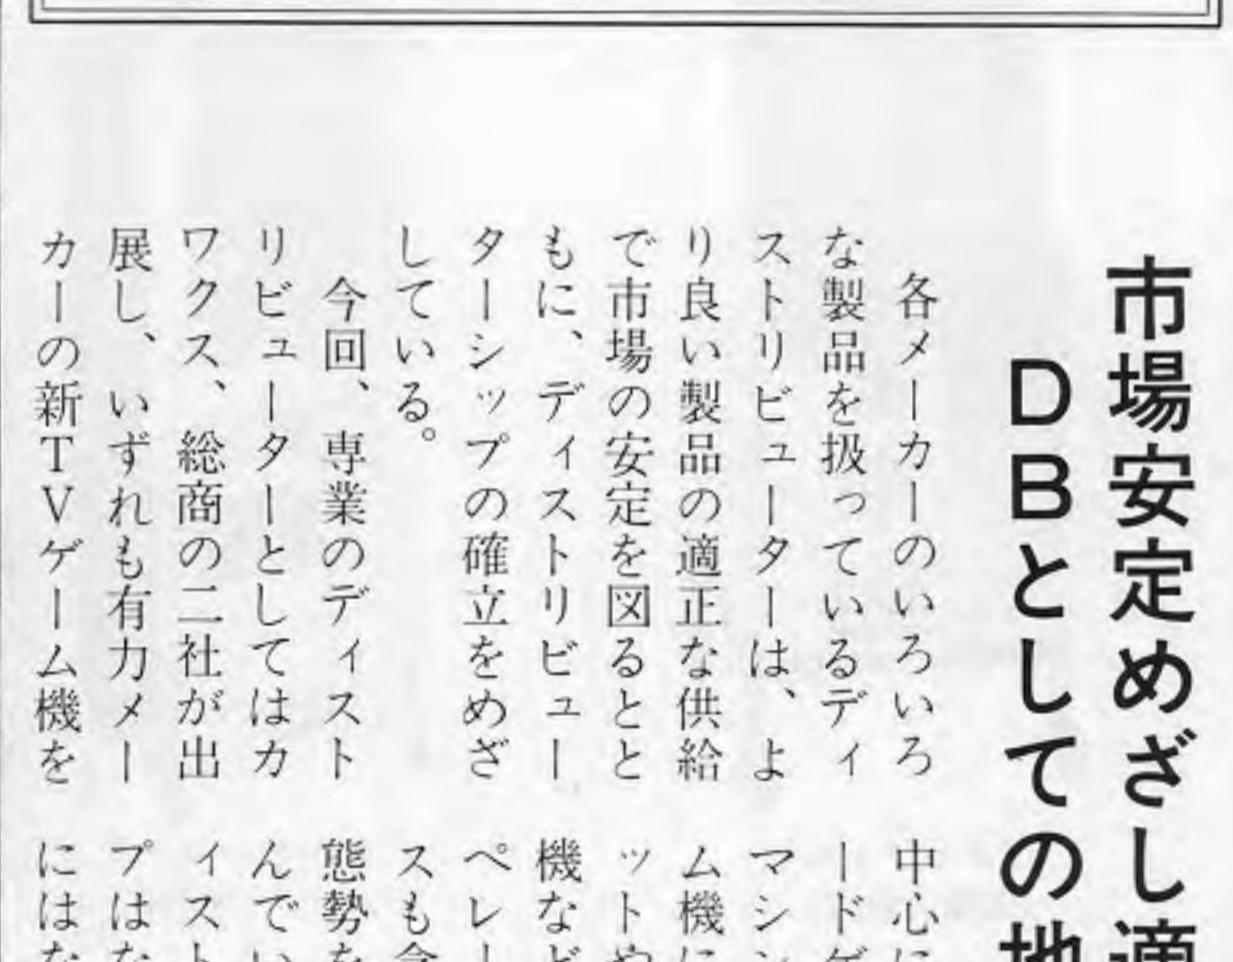 市場安定めざし適
DBとしての地
各メーカーのいろいろ
な製品を扱っているディ
ストリビューターは、よ
り良い製品の適正な供給
で市場の安定を図るとと
もに、ディストリビュー
ターシップの確立をめざ
している。
今回、専業のディスト
リビューターとしてはカ
ワクス、総商の二社が出
展し、いずれも有力メー
カーの新TVゲーム機を
中心に
ードゲ
マシン
ム機に
ットや
機など
ペレー
スも今
態勢を
んでい
ィスト
プはな
にはな